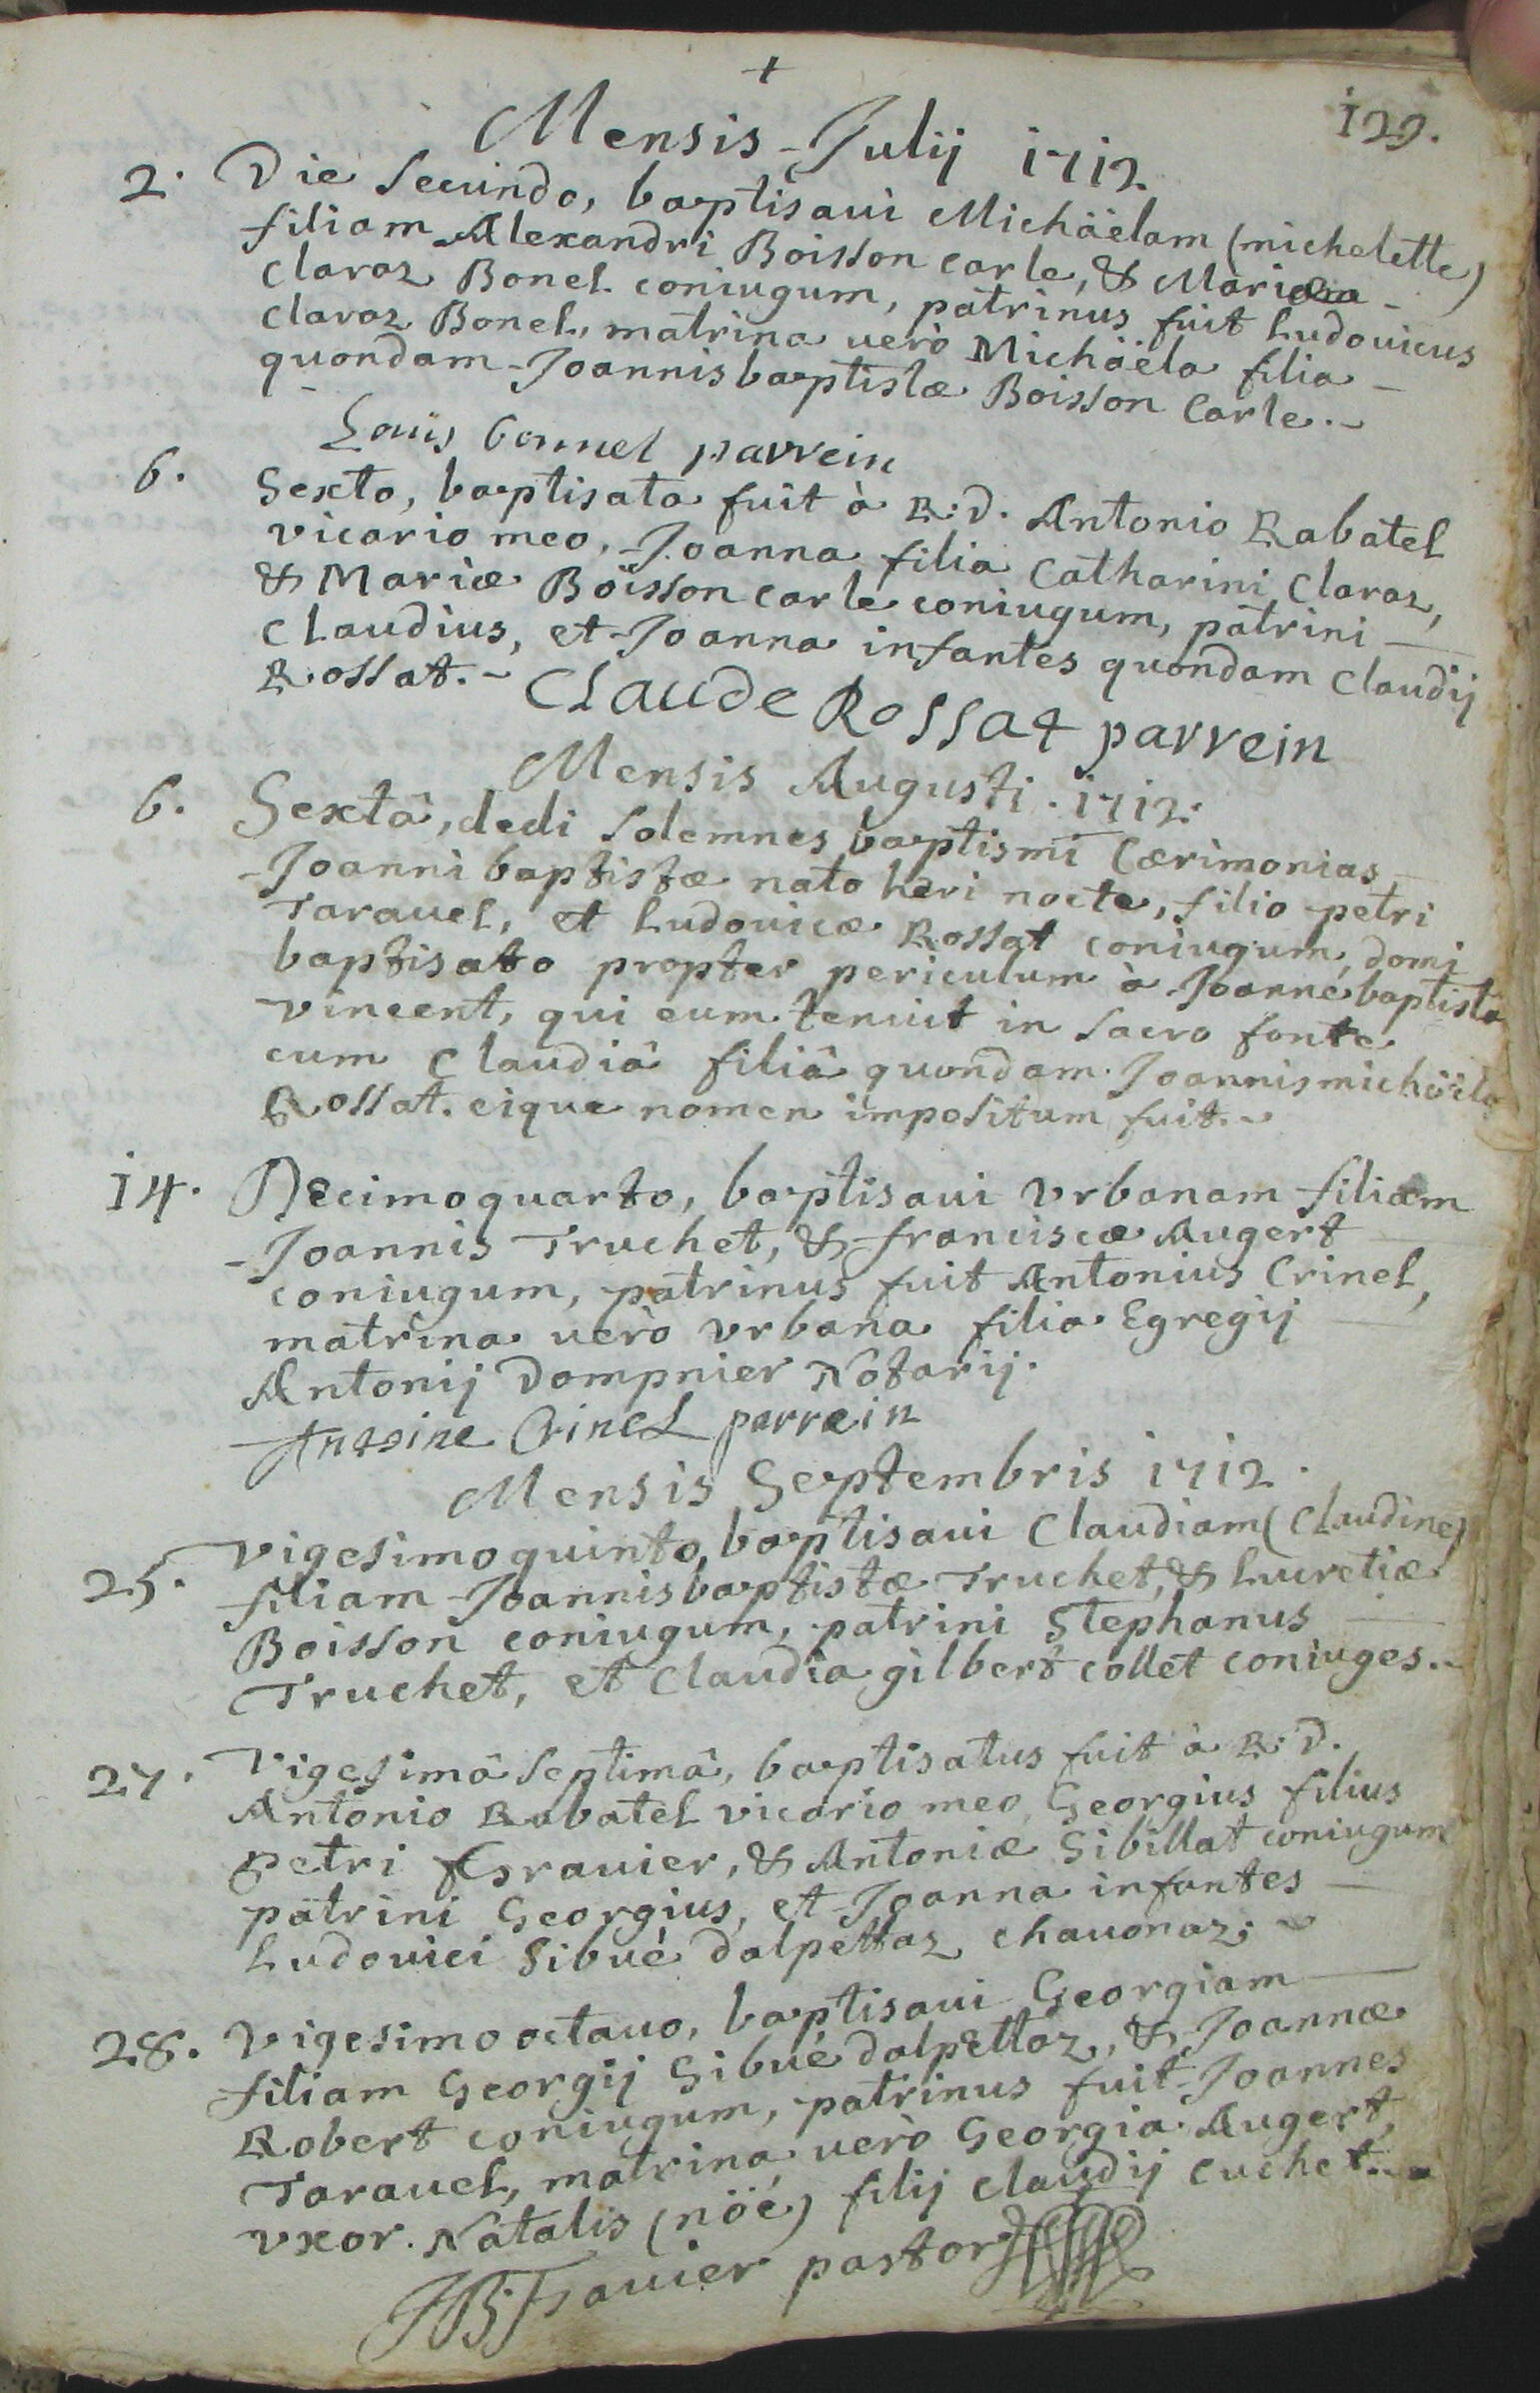 +
129.
Mensis Julij 1712
2. Die Secundo, baptisaui Michäelam (michelette)
filiam Alexandri Boisson Carle, & Mariæ
Claraz Bonel coniugum, patrinus fuit Ludouicus
Claraz Bonel, matrina uerò Michäela filia
quondam Joannisbaptistæ Boisson Carle.
Louis bonnel parrein
6. Sexto, baptisata fuit à R.D. Antonio Rabatel
vicario meo, Joanna filia Catharini Claraz,
& Mariæ Boisson Carle coniugum, patrini
Claudius, et Joanna infantes quondam Claudij
Rossat.
CLaude Rossat parrein
Mensis Augusti 1712.
6. Sextâ, dedi Solemnes baptismi Cærimonias
Joanni baptistæ nato heri nocte, filio petri
Tarauel, et Ludouicæ Rossat coniugum, domi
baptisato propter periculum à Joanne baptista
vincent, qui eum tenuit in Sacro fonte
cum Claudiâ filiâ quondam Joannismichäelis
Rossat. eique nomen impositum fuit.
14. Decimoquarto, baptisaui Vrbanam filiam
Joannis Truchet, & franciscæ Augert
coniugum, patrinus fuit Antonius Crinel,
matrina uerò vrbana filia Egregij
Antonij Dompnier Notarij.
Antoine Crinel parrein
Mensis Septembris 1712.
25. Vigesimoquinto, baptisaui Claudiam (Claudine)
filiam Joannisbaptistæ Truchet, & Lucretiæ
Boisson coniugum, patrini Stephanus
Truchet, et Claudia gilbert collet coniuges.
27. Vigesimâ Septimâ, baptisatus fuit à R.D.
Antonio Rabatel vicario meo, Georgius filius
Petri Grauier, & Antoniæ Sibillat coniugum
patrini Georgius, et Joanna infantes
Ludouici Sibué dalpettaz chauonaz.
28. Vigesimo octauo, baptisaui Georgiam
filiam Georgij Sibué dalpettaz, & Joannæ
Robert coniugum, patrinus fuit Joannes
Tarauel, matrina uerò Georgia Augert,
vxor Natalis (nöé) filij claudij cuchet.
pastor